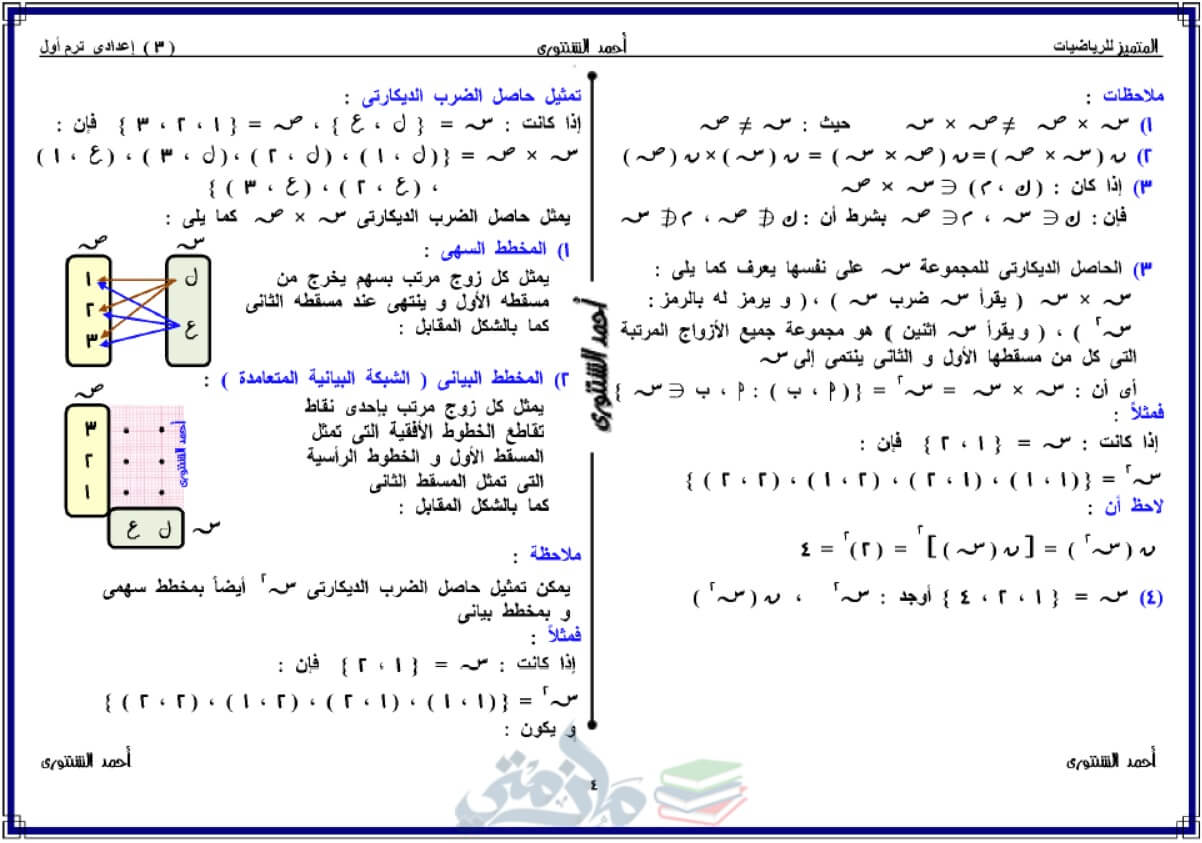 المتميز للرياضيات
أحمد الشنتوري
( ٣ ) إعدادى ترم أول
ملاحظات :
١) سـ × صـ ≠ صـ × سـ حيث : سـ ≠ صـ
٢) ن ( سـ × صـ ) = ن ( صـ × سـ ) = ن ( سـ ) × ن ( صـ )
٣) إذا كان : ( ك ، م ) ∈ سـ × صـ
فإن : ك ∈ سـ ، م ∈ صـ بشرط أن : ك ∉ صـ ، م ∉ سـ
٣) الحاصل الديكارتى للمجموعة سـ على نفسها يعرف كما يلى :
سـ × سـ ( يقرأ سـ ضرب سـ ) ، ( و يرمز له بالرمز :
سـ² ) ، ( ويقرأ سـ اثنين ) هو مجموعة جميع الأزواج المرتبة
التى كل من مسقطها الأول و الثانى ينتمى إلى سـ
أى أن : سـ × سـ = سـ² = {( م ، ب ) : م ، ب ∈ سـ }
فمثلاً :
إذا كانت : سـ = { ١ ، ٢ } فإن :
سـ² = {( ١ ، ١ ) ، ( ١ ، ٢ ) ، ( ٢ ، ١ ) ، ( ٢ ، ٢ ) }
لاحظ أن :
ن ( سـ² ) = [ ن ( سـ ) ]² = ( ٢ )² = ٤
(٤) سـ = { ١ ، ٢ ، ٤ } أوجد : سـ² ، ن ( سـ² )
أحمد الشنتوري
تمثيل حاصل الضرب الديكارتى :
إذا كانت : سـ = { ل ، ع } ، صـ = { ١ ، ٢ ، ٣ } فإن :
سـ × صـ = {( ل ، ١ ) ، ( ل ، ٢ ) ، ( ل ، ٣ ) ، ( ع ، ١ )
، ( ع ، ٢ ) ، ( ع ، ٣ ) }
يمثل حاصل الضرب الديكارتى سـ × صـ كما يلى :
١) المخطط السهى :
يمثل كل زوج مرتب بسهم يخرج من
مسقطه الأول و ينتهى عند مسقطه الثانى
كما بالشكل المقابل :
سـ صـ
ل ١
٢
ع ٣
٢) المخطط البيانى ( الشبكة البيانية المتعامدة ) :
يمثل كل زوج مرتب بإحدى نقاط
تقاطع الخطوط الأفقية التى تمثل
المسقط الأول و الخطوط الرأسية
التى تمثل المسقط الثانى
كما بالشكل المقابل :
صـ
٣
٢
١
أحمد الشنتوري
سـ ل ع
ملاحظة :
يمكن تمثيل حاصل الضرب الديكارتى سـ² أيضاً بمخطط سهمى
و بمخطط بيانى
فمثلاً :
إذا كانت : سـ = { ١ ، ٢ } فإن :
سـ² = {( ١ ، ١ ) ، ( ١ ، ٢ ) ، ( ٢ ، ١ ) ، ( ٢ ، ٢ ) }
و يكون :
أحمد الشنتوري
٤
أحمد الشنتوري
ملزمتي